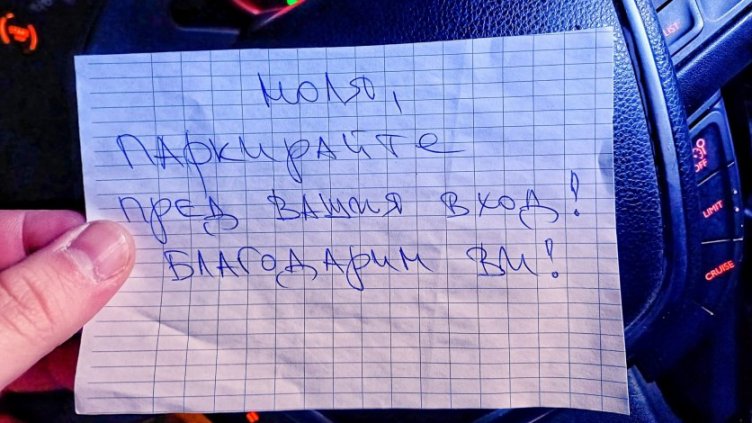 МОЛЯ,
ПАРКИРАЙТЕ
ПРЕД ВАШИЯ ВХОД!
БЛАГОДАРИМ ВИ!
LIST
OFF
LIMIT
CRUISE